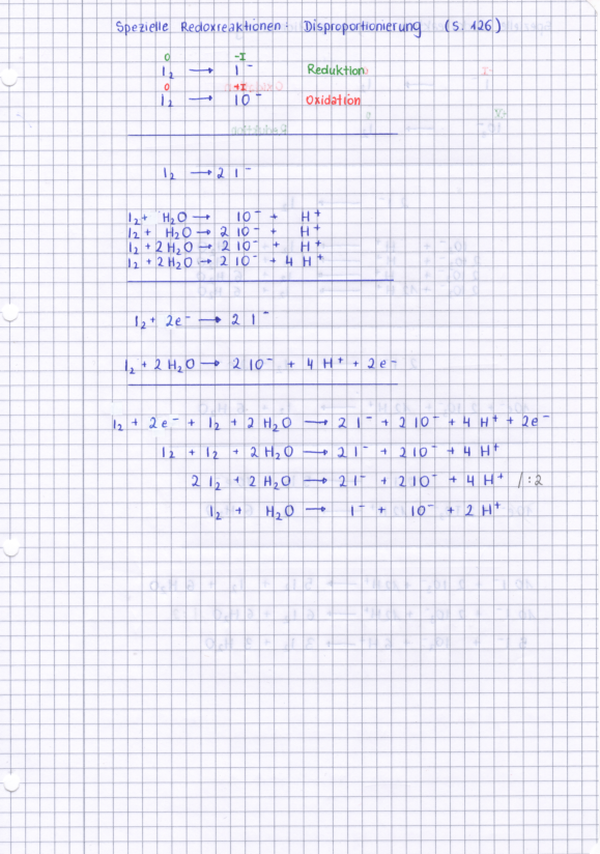 Spezielle Redoxreaktionen: Disproportionierung (S. 126)
0 -I
I₂ → I⁻ Reduktion
0 +I
I₂ → IO⁻ Oxidation
I₂ → 2 I⁻
I₂ + H₂O → IO⁻ + H⁺
I₂ + H₂O → 2 IO⁻ + H⁺
I₂ + 2 H₂O → 2 IO⁻ + H⁺
I₂ + 2 H₂O → 2 IO⁻ + 4 H⁺
I₂ + 2e⁻ → 2 I⁻
I₂ + 2 H₂O → 2 IO⁻ + 4 H⁺ + 2e⁻
I₂ + 2e⁻ + I₂ + 2 H₂O → 2 I⁻ + 2 IO⁻ + 4 H⁺ + 2e⁻
I₂ + I₂ + 2 H₂O → 2 I⁻ + 2 IO⁻ + 4 H⁺
2 I₂ + 2 H₂O → 2 I⁻ + 2 IO⁻ + 4 H⁺ /:2
I₂ + H₂O → I⁻ + IO⁻ + 2 H⁺